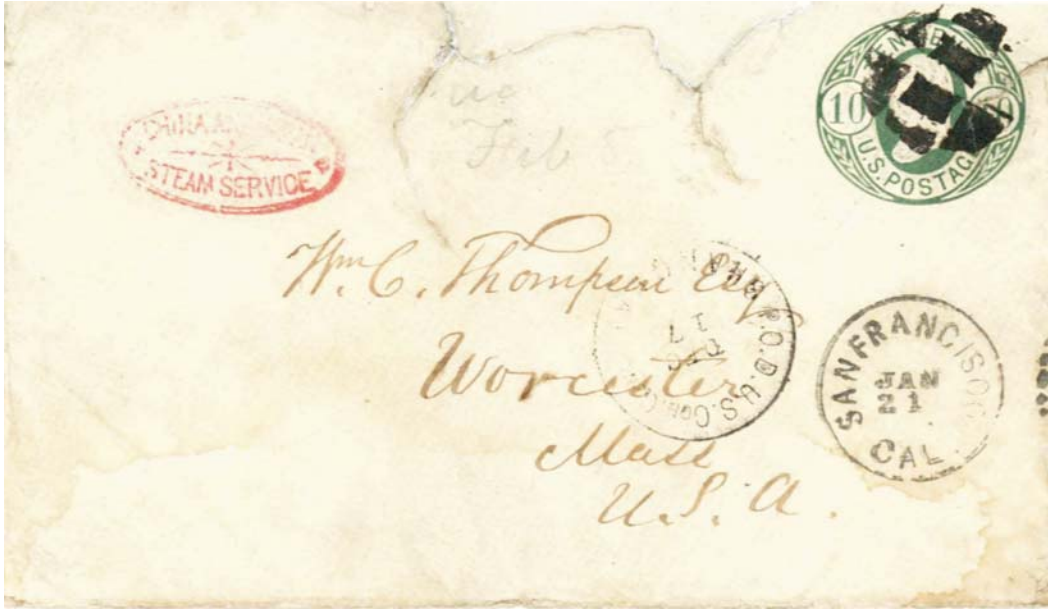 CHINA AN
STEAM SERVICE
TEN
10
U.S. POSTAG
Feb
Wm. C. Thompson Esq
Worcester
Mass
U.S.A.
P.O.D.U.S.
17
SAN FRANCISCO
JAN
21
CAL